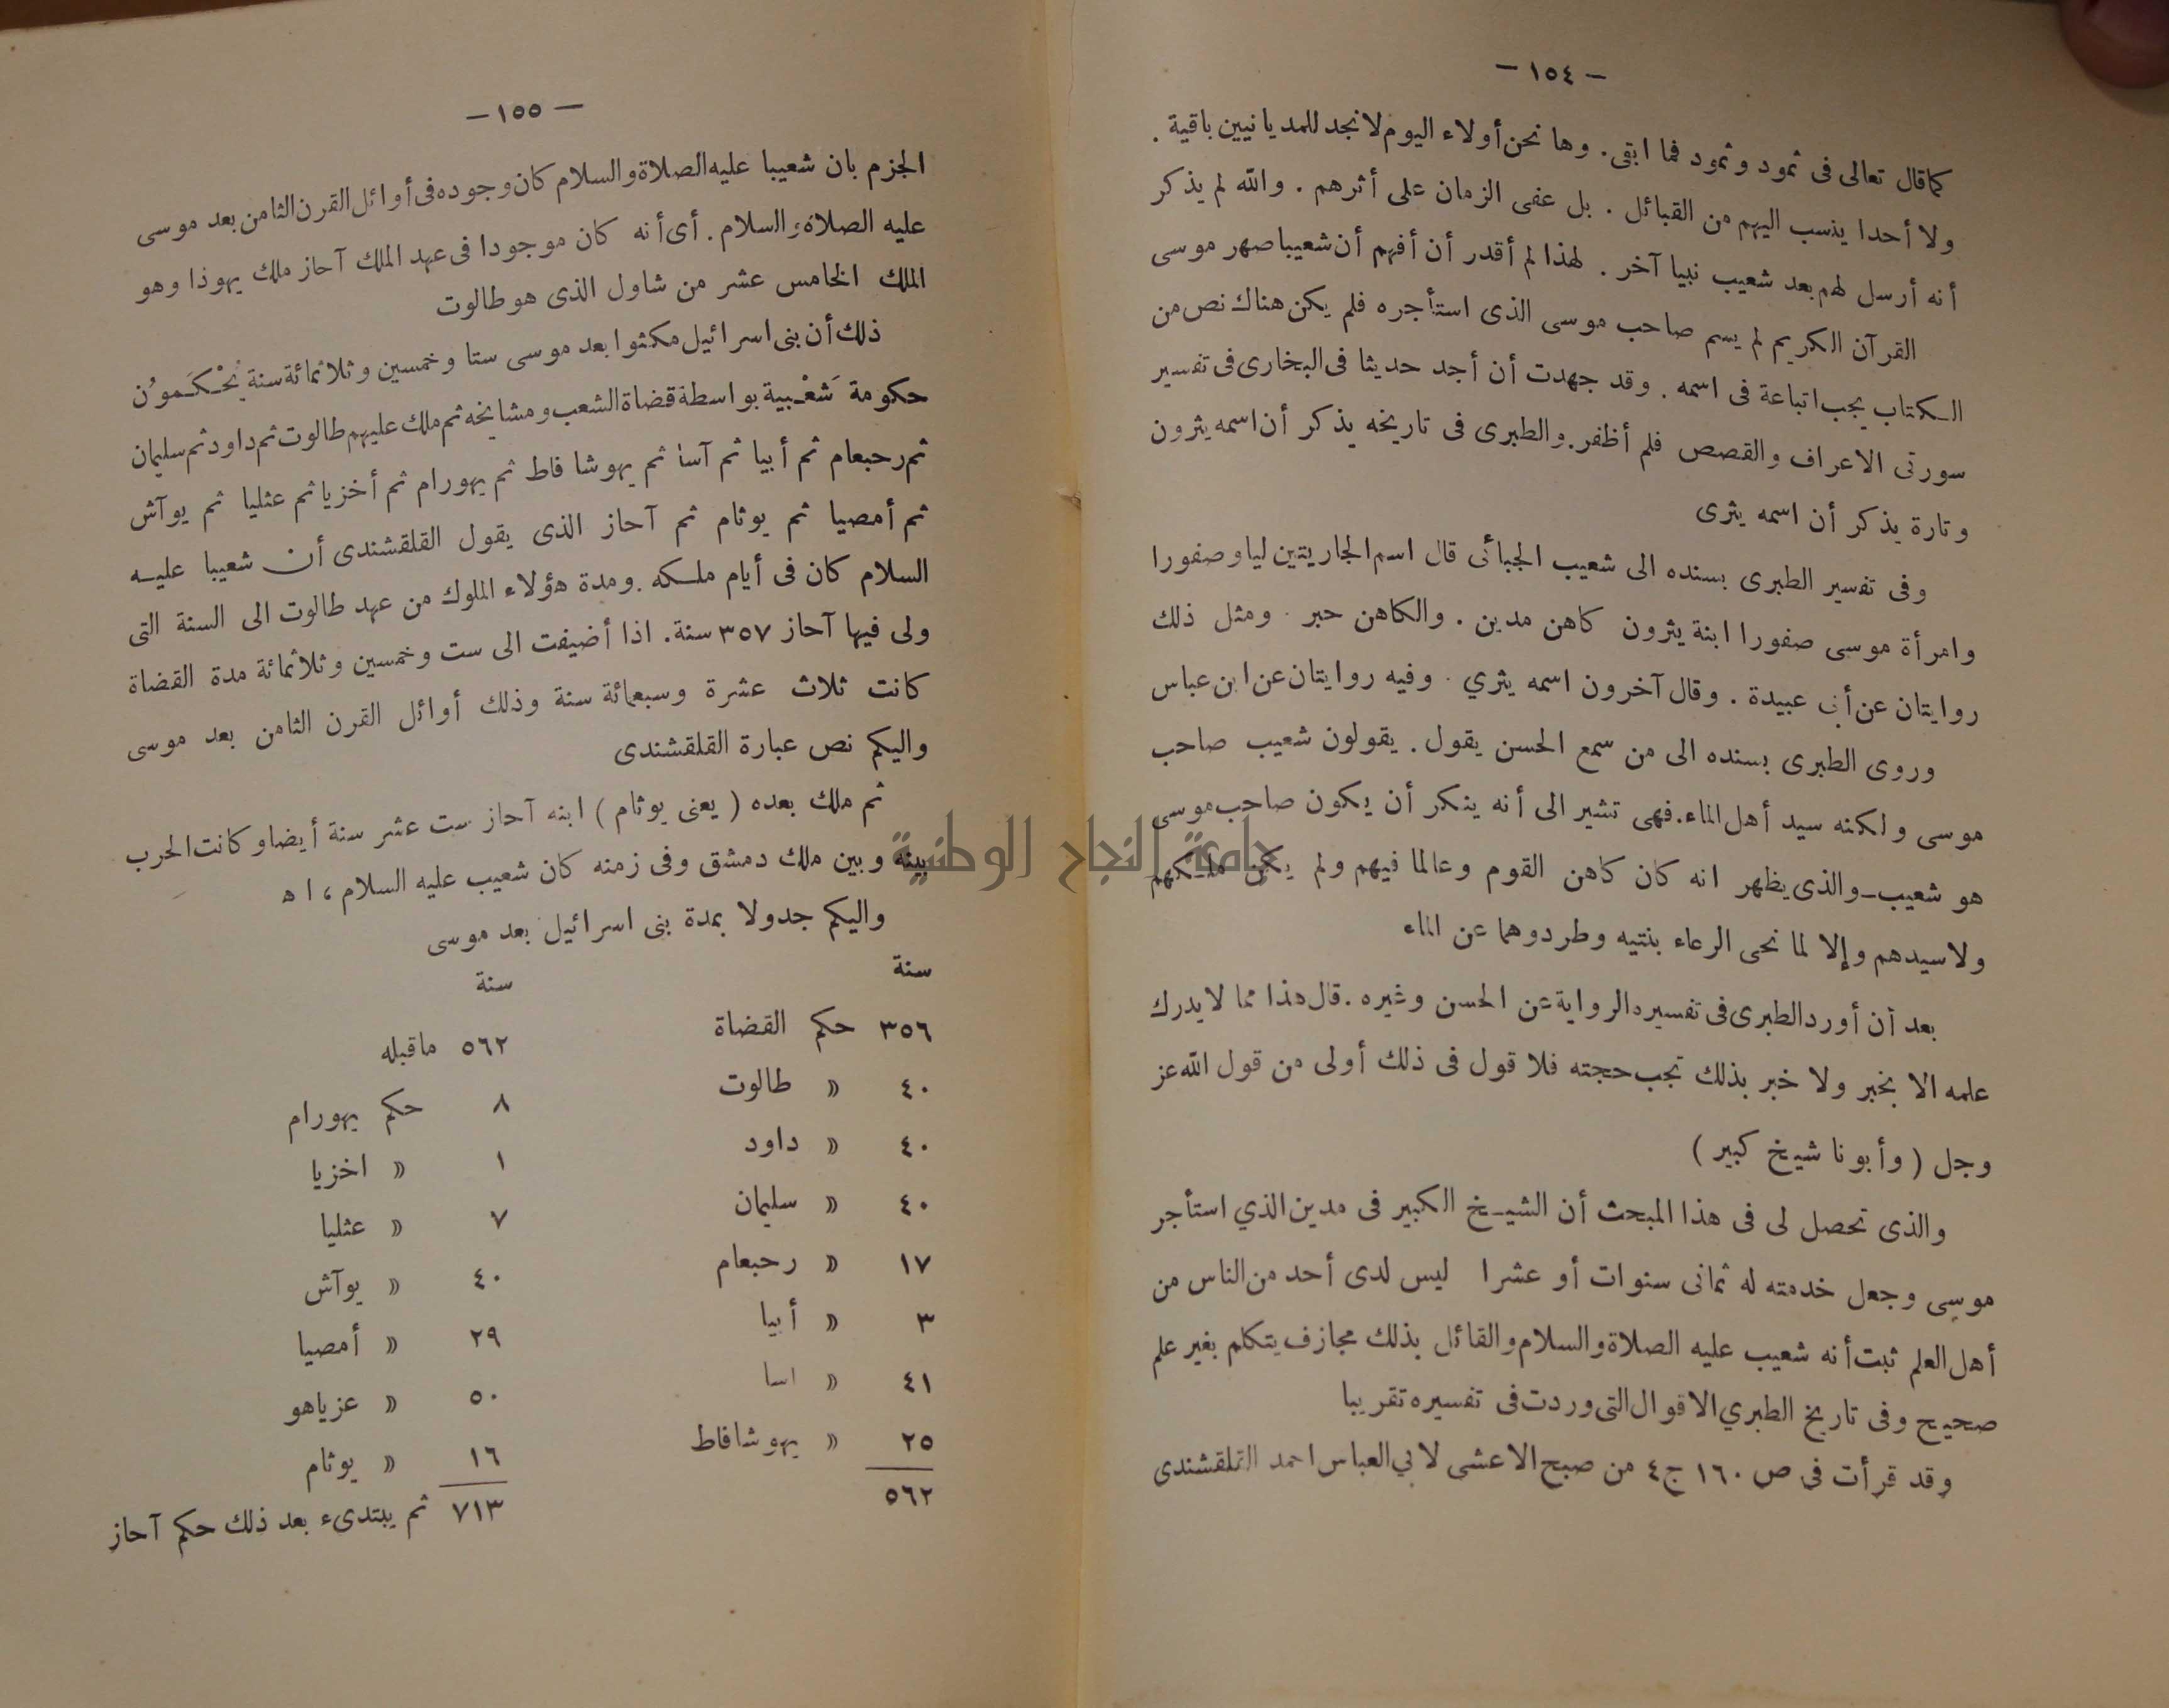 — ١٥٤ —
كما قال تعالى فى ثمود وثمود فما ابقى. وها نحن أولاء اليوم لا نجد للمديانيين باقية.
ولا أحدا ينسب اليهم من القبائل . بل عفى الزمان على أثرهم . والله لم يذكر
أنه أرسل لهم بعد شعيب نبيا آخر . لهذا لم أقدر أن أفهم أن شعيبا صهر موسى
القرآن الكريم لم يسم صاحب موسى الذى استأجره فلم يكن هناك نص من
الكتاب يجب اتباعة فى اسمه . وقد جهدت أن أجد حديثا فى البخارى فى تفسير
سورتى الاعراف والقصص فلم أظفر. والطبرى فى تاريخه يذكر أن اسمه يثرون
وتارة يذكر أن اسمه يثرى
وفى تفسير الطبرى بسنده الى شعيب الجبائى قال اسم الجاريتين ليا وصفورا
وامرأة موسى صفورا ابنة يثرون كاهن مدين . والكاهن حبر . ومثل ذلك
روايتان عن أبى عبيدة . وقال آخرون اسمه يثري . وفيه روايتان عن ابن عباس
وروى الطبرى بسنده الى من سمع الحسن يقول . يقولون شعيب صاحب
موسى ولكنه سيد أهل الماء. فهى تشير الى أنه ينكر أن يكون صاحب موسى
هو شعيب ـ والذى يظهر انه كان كاهن القوم وعالما فيهم ولم يكن ملكهم
ولا سيدهم وإلا لما نحى الرعاء بنتيه وطردوهما عن الماء
بعد أن أورد الطبرى فى تفسيره الرواية عن الحسن وغيره . قال هذا مما لا يدرك
علمه الا بخبر ولا خبر بذلك تجب حجته فلا قول فى ذلك أولى من قول الله عز
وجل ( وأبونا شيخ كبير )
والذى تحصل لى فى هذا المبحث أن الشيخ الكبير فى مدين الذي استأجر
موسى وجعل خدمته له ثمانى سنوات أو عشرا ليس لدى أحد من الناس من
أهل العلم ثبت أنه شعيب عليه الصلاة والسلام والقائل بذلك مجازف يتكلم بغير علم
صحيح وفى تاريخ الطبري الاقوال التى وردت فى تفسيره تقريبا
وقد قرأت فى ص ١٦٠ ج ٤ من صبح الاعشى لابي العباس احمد القلقشندى
— ١٥٥ —
الجزم بان شعيبا عليه الصلاة والسلام كان وجوده فى أوائل القرن الثامن بعد موسى
عليه الصلاة والسلام . أى أنه كان موجودا فى عهد الملك آحاز ملك يهوذا وهو
الملك الخامس عشر من شاول الذى هو طالوت
ذلك أن بنى اسرائيل مكثوا بعد موسى ستا وخمسين وثلاثمائة سنة يُحْكَمُون
حكومة شَعْبية بواسطة قضاة الشعب ومشايخه ثم ملك عليهم طالوت ثم داود ثم سليمان
ثم رحبعام ثم أبيا ثم آسا ثم يهوشافاط ثم يهورام ثم أخزيا ثم عثليا ثم يوآش
ثم أمصيا ثم يوثام ثم آحاز الذى يقول القلقشندى أن شعيبا عليه
السلام كان فى أيام ملكه . ومدة هؤلاء الملوك من عهد طالوت الى السنة التى
ولى فيها آحاز ٣٥٧ سنة . اذا أضيفت الى ست وخمسين وثلاثمائة مدة القضاة
كانت ثلاث عشرة وسبعمائة سنة وذلك أوائل القرن الثامن بعد موسى
واليكم نص عبارة القلقشندى
ثم ملك بعده ( يعنى يوثام ) ابنه آحاز ست عشر سنة أيضا وكانت الحرب
بينه وبين ملك دمشق وفى زمنه كان شعيب عليه السلام ، اه
واليكم جدولا بمدة بنى اسرائيل بعد موسى
سنة
٣٥٦ حكم القضاة
٤٠ » طالوت
٤٠ » داود
٤٠ » سليمان
١٧ » رحبعام
٣ » أبيا
٤١ » اسا
٢٥ » يهوشافاط
٥٦٢
سنة
٥٦٢ ماقبله
٨ حكم يهورام
١ » اخزيا
٧ » عثليا
٤٠ » يوآش
٢٩ » أمصيا
٥٠ » عزياهو
١٦ » يوثام
٧١٣ ثم يبتدىء بعد ذلك حكم آحاز
جامعة النجاح الوطنية